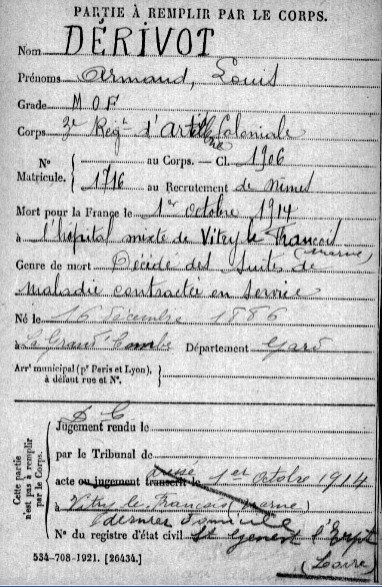 PARTIE À REMPLIR PAR LE CORPS.
Nom DÉRIVOT
Prénoms Armand, Louis
Grade M O F
Corps 3e Régt d'Artillie Coloniale
No Matricule. { au Corps. — Cl. 1906
1716 au Recrutement de Nimes
Mort pour la France le 1er octobre 1914
à l'hôpital mixte de Vitry le Francois (Marne)
Genre de mort Décédé des suites de
maladie contractée en service
Né le 16 decembre 1886
à La Grand'Combe Département Gard
Arrt municipal (pr Paris et Lyon), à défaut rue et No.
Cette partie n'est pas à remplir par le Corps.
D C
Jugement rendu le
par le Tribunal de
acte ou jugement transcrit le 1er octobre 1914
à Vitry le François (Marne)
dernier domicile
No du registre d'état civil St Genest l'Erpt
(Loire)
534-708-1921. [26434.]